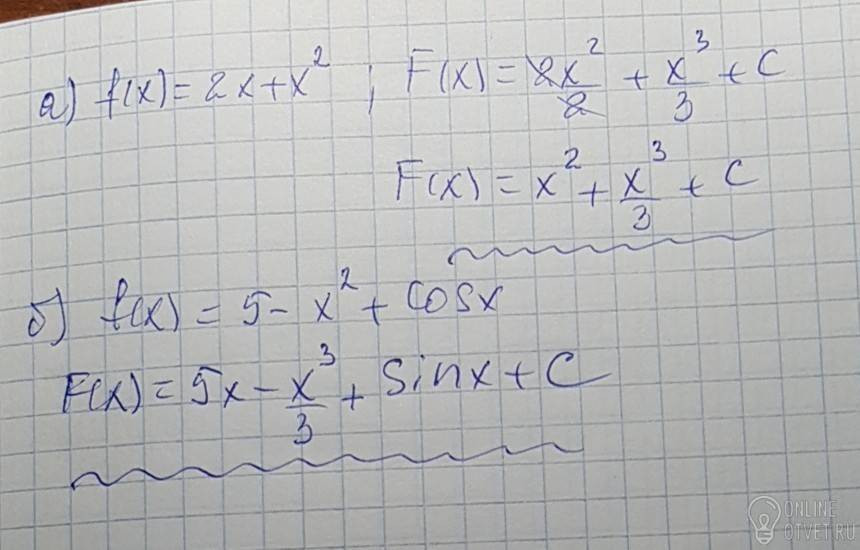 а) f(x) = 2x + x² ; F(x) = 2x²/2 + x³/3 + C
F(x) = x² + x³/3 + C
б) f(x) = 5 - x² + cosx
F(x) = 5x - x³/3 + sinx + C
ONLINE
OTVET.RU